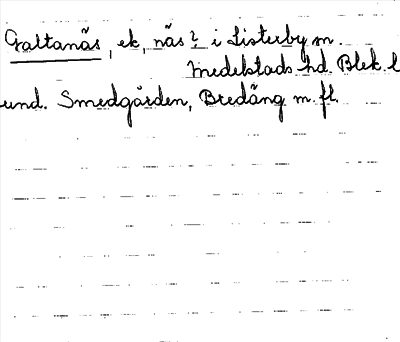 Galtanäs, ek, näs? i Listerby sn
Medelstads hd. Blek. l
und. Smedgården, Bredäng m. fl.